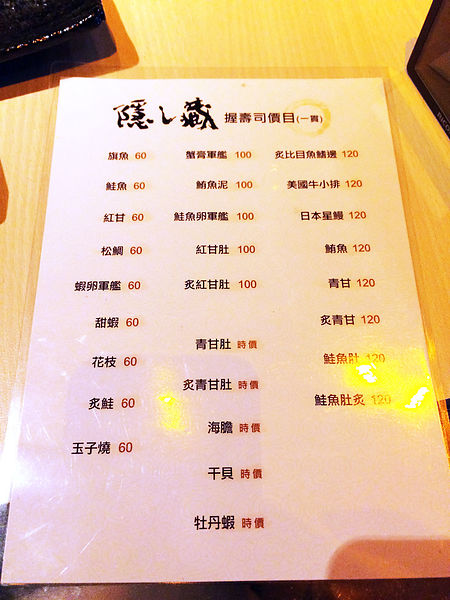 隱し藏 握壽司價目(一貫)
旗魚 60 蟹膏軍艦 100 炙比目魚鰭邊 120
鮭魚 60 鮪魚泥 100 美國牛小排 120
紅甘 60 鮭魚卵軍艦 100 日本星鰻 120
松鯛 60 紅甘肚 100 鮪魚 120
蝦卵軍艦 60 炙紅甘肚 100 青甘 120
甜蝦 60 青甘肚 時價 炙青甘 120
花枝 60 炙青甘肚 時價 鮭魚肚 120
炙鮭 60 海膽 時價 鮭魚肚炙 120
玉子燒 60 干貝 時價
牡丹蝦 時價